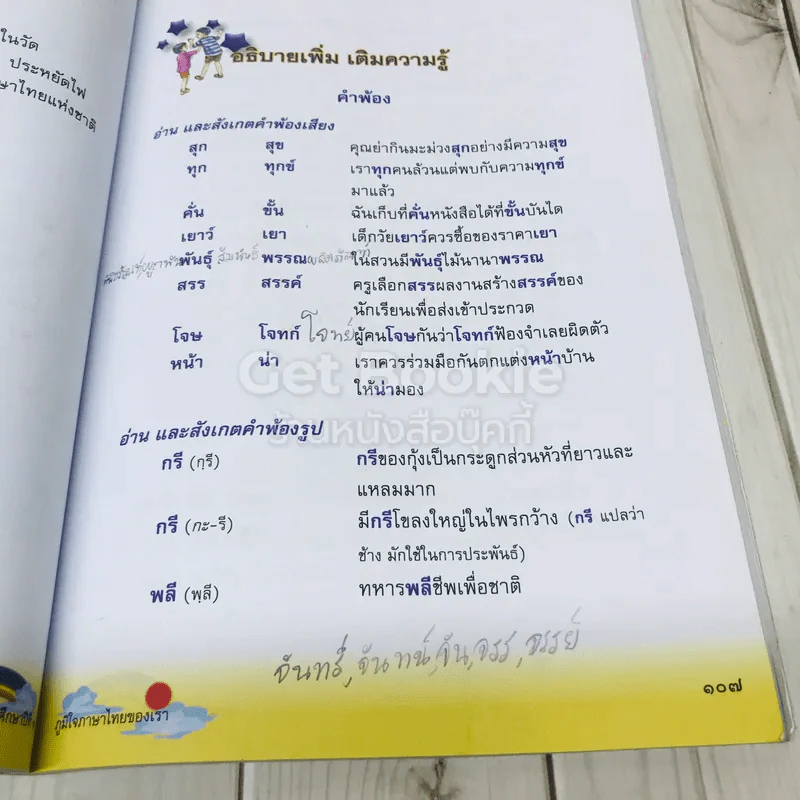 ในวัด
ประหยัดไฟ
ษาไทยแห่งชาติ
อธิบายเพิ่ม เติมความรู้
คำพ้อง
อ่าน และสังเกตคำพ้องเสียง
สุก สุข คุณย่ากินมะม่วงสุกอย่างมีความสุข
ทุก ทุกข์ เราทุกคนล้วนแต่พบกับความทุกข์
มาแล้ว
คั่น ขั้น ฉันเก็บที่คั่นหนังสือได้ที่ขั้นบันได
เยาว์ เยา เด็กวัยเยาว์ควรซื้อของราคาเยา
พันธุ์ สัมพันธ์ พรรณ ในสวนมีพันธุ์ไม้นานาพรรณ
สรร สรรค์ ครูเลือกสรรผลงานสร้างสรรค์ของ
นักเรียนเพื่อส่งเข้าประกวด
โจษ โจทก์ โจทย์ ผู้คนโจษกันว่าโจทก์ฟ้องจำเลยผิดตัว
หน้า น่า เราควรร่วมมือกันตกแต่งหน้าบ้าน
ให้น่ามอง
Get Bookie
ร้านหนังสือบุ๊คกี้
อ่าน และสังเกตคำพ้องรูป
กรี (กฺรี) กรีของกุ้งเป็นกระดูกส่วนหัวที่ยาวและ
แหลมมาก
กรี (กะ-รี) มีกรีโขลงใหญ่ในไพรกว้าง (กรี แปลว่า
ช้าง มักใช้ในการประพันธ์)
พลี (พฺลี) ทหารพลีชีพเพื่อชาติ
จันทร์, จันทน์, จัน, จรร, จรรย์
ศึกษาปีที่
ภูมิใจภาษาไทยของเรา
๑๐๗